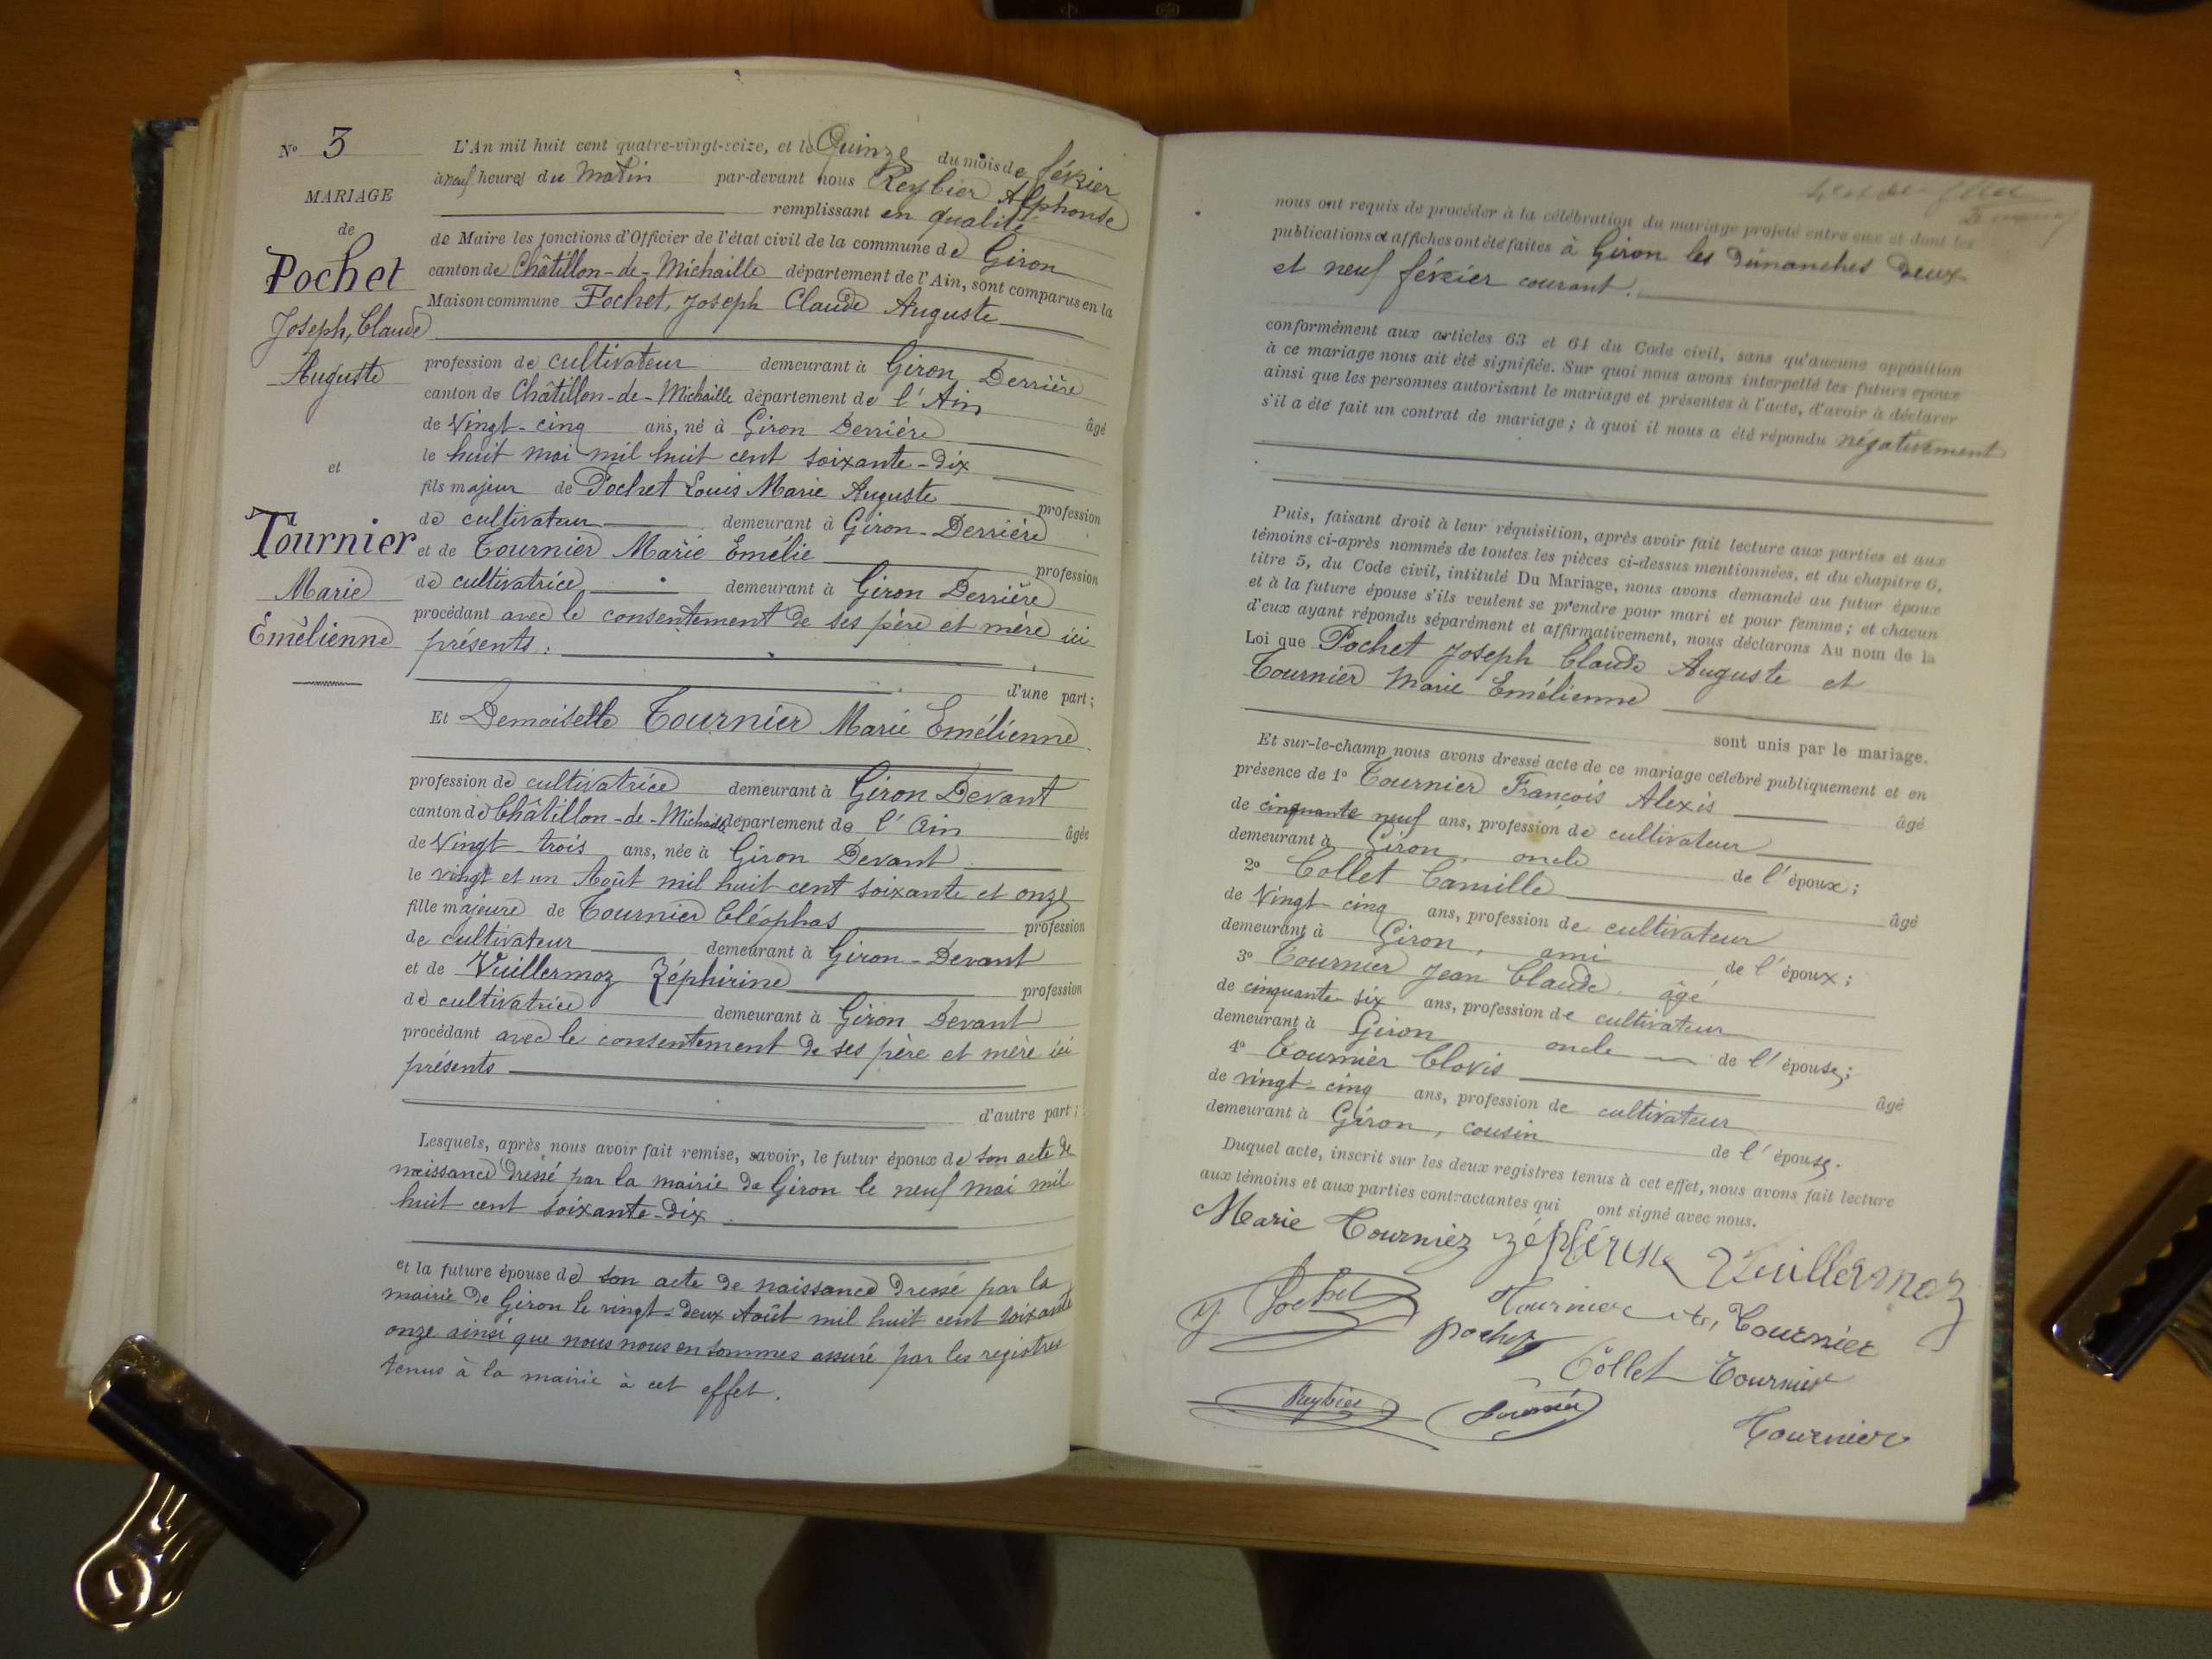 N° 3
MARIAGE
de
Pochet
Joseph, Claude
Auguste
et
Tournier
Marie
Emélienne
L'An mil huit cent quatre-vingt-seize, et le Quinze du mois de février
à neuf heures du Matin par-devant nous Reybier Alphonse
remplissant en qualité
de Maire les fonctions d'Officier de l'état civil de la commune de Giron
canton de Châtillon-de-Michaille département de l'Ain, sont comparus en la
Maison commune Pochet, Joseph Claude Auguste
profession de cultivateur demeurant à Giron Derrière
canton de Châtillon-de-Michaille département de l'Ain
âgé
de Vingt-cinq ans, né à Giron Derrière
le huit mai mil huit cent soixante-dix
fils majeur de Pochet Louis Marie Auguste profession
de cultivateur demeurant à Giron-Derrière
et de Tournier Marie Emélie profession
de cultivatrice demeurant à Giron Derrière
procédant avec le consentement de ses père et mère ici
présents.
d'une part;
Et Demoiselle Tournier Marie Emélienne
profession de cultivatrice demeurant à Giron Devant
canton de Châtillon-de-Michaille département de l'Ain âgée
de Vingt-trois ans, née à Giron Devant
le vingt et un Août mil huit cent soixante et onze
fille majeure de Tournier Cléophas profession
de cultivateur demeurant à Giron-Devant
et de Vuillermoz Zéphirine profession
de cultivatrice demeurant à Giron Devant
procédant avec le consentement de ses père et mère ici
présents
d'autre part;
Lesquels, après nous avoir fait remise, savoir, le futur époux de son acte de
naissance dressé par la mairie de Giron le neuf mai mil
huit cent soixante-dix.
et la future épouse de son acte de naissance dressé par la
mairie de Giron le vingt-deux Août mil huit cent soixante
onze ainsi que nous nous en sommes assuré par les registres
tenus à la mairie à cet effet.
nous ont requis de procéder à la célébration du mariage projeté entre eux et dont les
publications et affiches ont été faites à Giron les dimanches deux
et neuf février courant.
conformément aux articles 63 et 64 du Code civil, sans qu'aucune opposition
à ce mariage nous ait été signifiée. Sur quoi nous avons interpellé les futurs époux
ainsi que les personnes autorisant le mariage et présentes à l'acte, d'avoir à déclarer
s'il a été fait un contrat de mariage; à quoi il nous a été répondu négativement
Puis, faisant droit à leur réquisition, après avoir fait lecture aux parties et aux
témoins ci-après nommés de toutes les pièces ci-dessus mentionnées, et du chapitre 6,
titre 5, du Code civil, intitulé Du Mariage, nous avons demandé au futur époux
et à la future épouse s'ils veulent se prendre pour mari et pour femme; et chacun
d'eux ayant répondu séparément et affirmativement, nous déclarons Au nom de la
Loi que Pochet Joseph Claude Auguste et
Tournier Marie Emélienne
sont unis par le mariage.
Et sur-le-champ nous avons dressé acte de ce mariage célébré publiquement et en
présence de 1° Tournier François Alexis âgé
de cinquante neuf ans, profession de cultivateur
demeurant à Giron, oncle de l'époux;
2° Collet Camille âgé
de Vingt-cinq ans, profession de cultivateur
demeurant à Giron, ami de l'époux;
3° Tournier Jean Claude. âgé
de cinquante-six ans, profession de cultivateur
demeurant à Giron oncle de l'épouse;
4° Tournier Clovis âgé
de vingt-cinq ans, profession de cultivateur
demeurant à Giron, cousin de l'épouse.
Duquel acte, inscrit sur les deux registres tenus à cet effet, nous avons fait lecture
aux témoins et aux parties contractantes qui ont signé avec nous.
Marie Tournier Zéphirine Vuillermoz
J Pochet Tournier Tournier
pochet
Collet Tournier
Reybier Tournier
Tournier